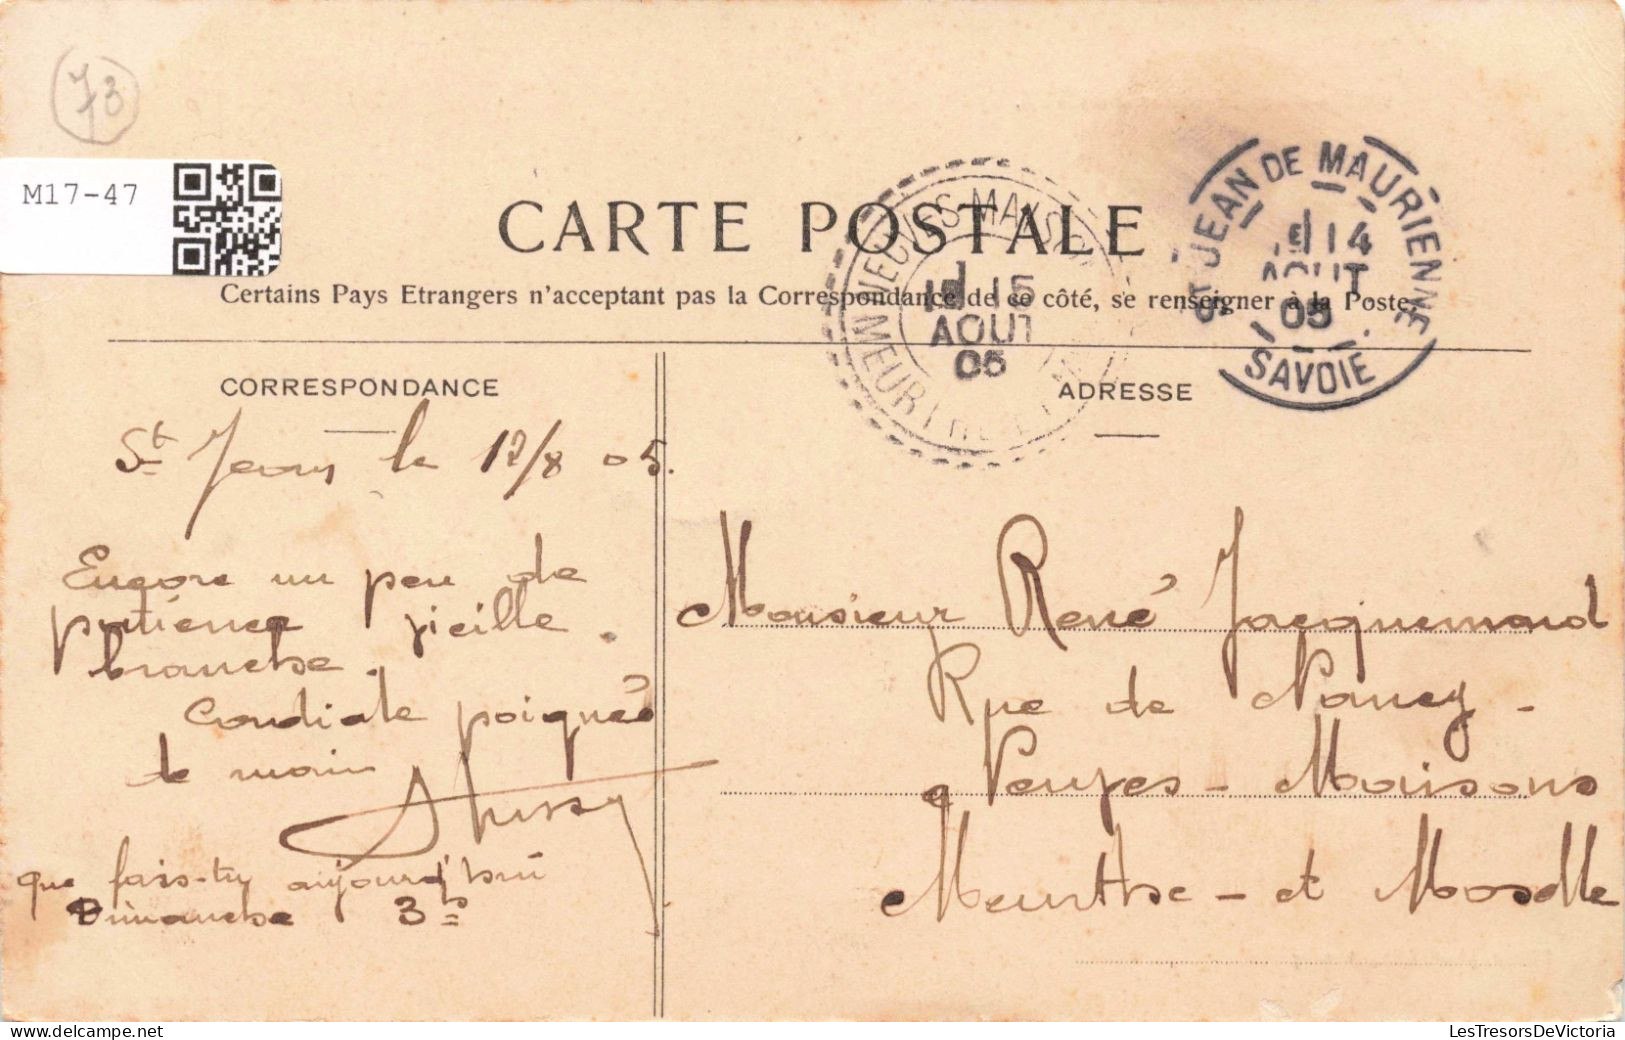 73
M17-47
CARTE POSTALE
Certains Pays Etrangers n'acceptant pas la Correspondance de ce côté, se renseigner à la Poste.
ST JEAN DE MAURIENNE
14
AOUT
05
SAVOIE
15
AOUT
05
CORRESPONDANCE
ADRESSE
St Jean le 12/8 05.
Encore un peu de
patience vieille
branche.
Cordiale poignée
de main
que fais-tu aujourd'hui
Dimanche 3h
Monsieur René Jacquemard
Rue de Nancy -
Neuves - Maisons
Meurthe - et Moselle
LesTresorsDeVictoria